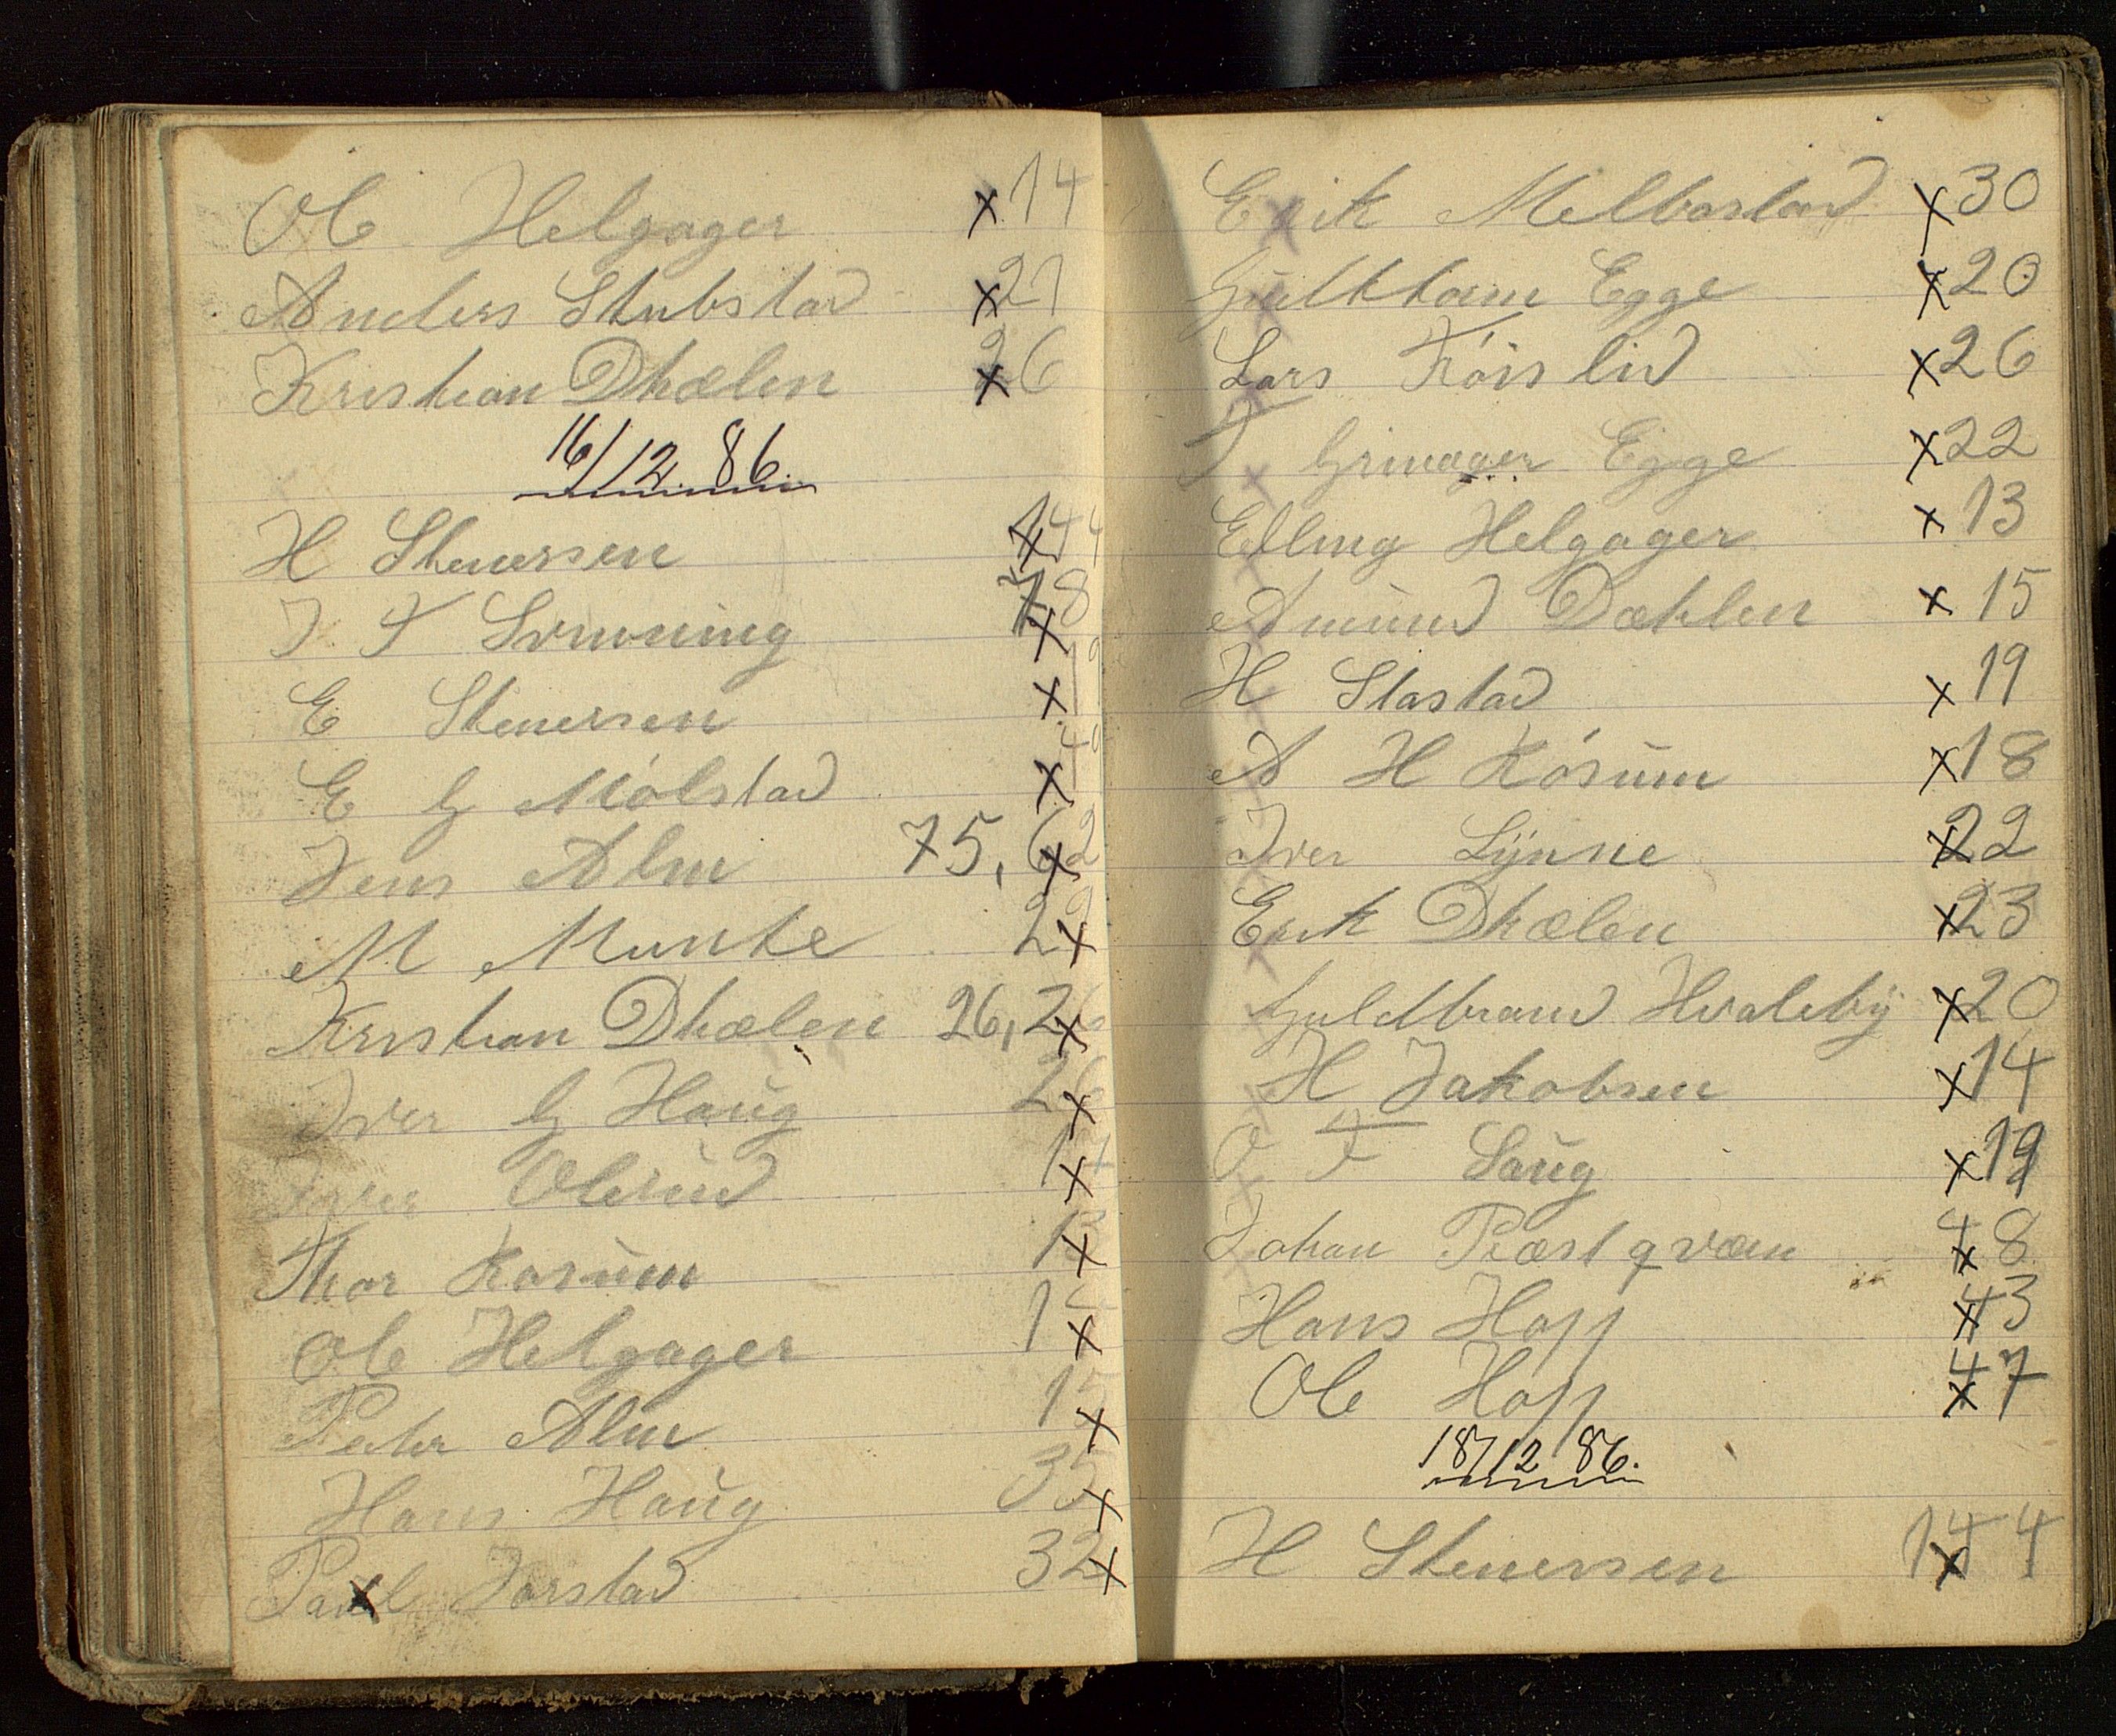 Ole Helgager x 14
Anders Stubstad x 21
Kristian Dhælen x 26
16/12 86.
H Stenersen x 144
J T Svenning x 78
E Stenersen x
E G Mólstad x
Jens Alm 75, 62 x
M Munke 22 x
Kristian Dhælen 26, 26 x
Iver G Haŭg 26 x
Iver Olerŭd 14 x
Thor Korŭm 13 x
Ole Helgager 14 x
Peter Alm 15 x
Hans Haŭg 35 x
Paul Jorstad 32 x
Erik Melbostad x 30
Egge x 20
Lars Róislid x 26
T Grinager Egge x 22
Elling Helgager x 13
Amŭnd Dæhlen x 15
H Stastad x 19
A H Kórŭm x 18
Iver Lÿnne x 22
Erik Dhælen x 23
Guldbrand Hvalebÿ x 20
H Jakobsen x 14
O T Saŭg x 19
Johan Præstqværn x 48
Hans Hopp x 43
Ole Hopp x 47
18/12 86.
H Stenersen x 144